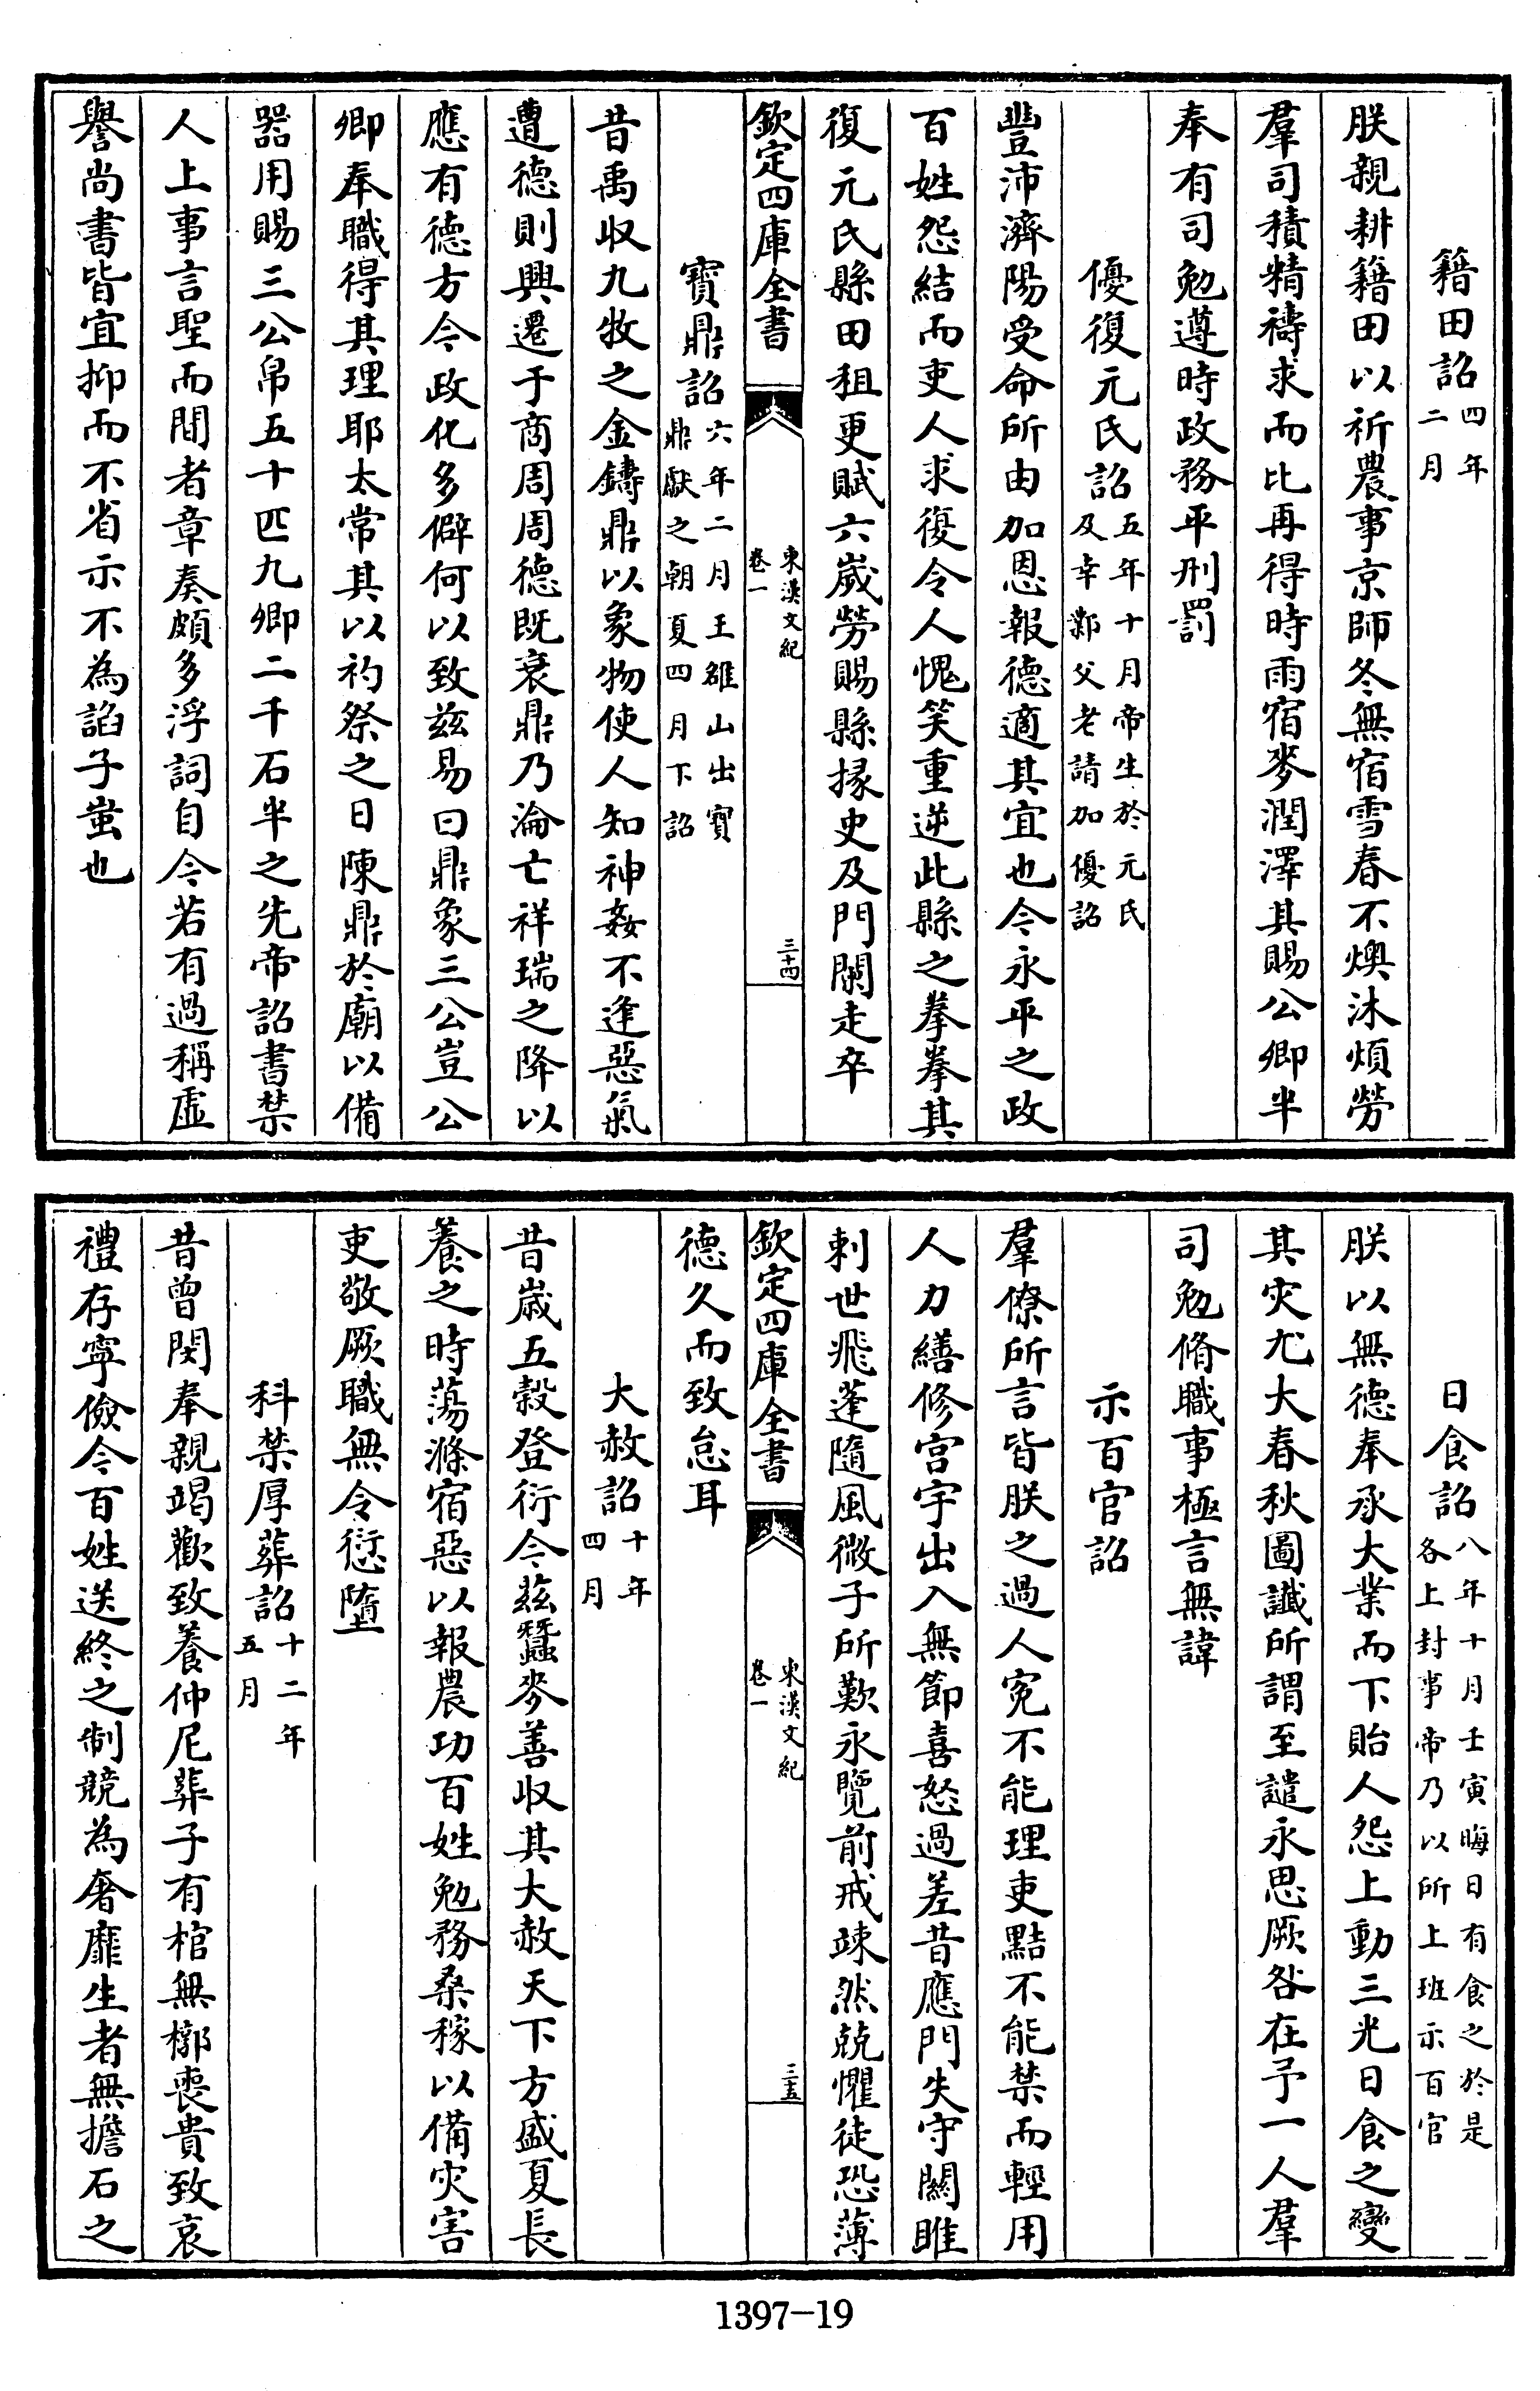 籍田詔四年
二月
朕親耕籍田以祈農事京師冬無宿雪春不燠沐煩勞
羣司積精禱求而比再得時雨宿麥潤澤其賜公卿半
奉有司勉遵時政務平刑罰
優復元氏詔五年十月帝生於元氏
及幸鄴父老請加優詔
豐沛濟陽受命所由加恩報德適其宜也今永平之政
百姓怨結而吏人求復令人愧笑重逆此縣之拳拳其
復元氏縣田租更賦六嵗勞賜縣掾史及門闌走卒
欽定四庫全書
東漢文紀
卷一
三十四
寳鼎詔六年二月王雒山出寳
鼎獻之朝夏四月下詔
昔禹収九牧之金鑄鼎以象物使人知神姦不逢惡氣
遭德則興遷于商周周德既衰鼎乃淪亡祥瑞之降以
應有德方今政化多僻何以致兹易曰鼎象三公豈公
卿奉職得其理耶太常其以礿祭之日陳鼎於廟以備
器用賜三公帛五十匹九卿二千石半之先帝詔書禁
人上事言聖而間者章奏頗多浮詞自今若有過稱虛
譽尚書皆宜抑而不省示不為諂子蚩也
日食詔八年十月壬寅晦日有食之於是
各上封事帝乃以所上班示百官
朕以無德奉承大業而下貽人怨上動三光日食之變
其灾尤大春秋圖讖所謂至譴永思厥咎在予一人羣
司勉脩職事極言無諱
示百官詔
羣僚所言皆朕之過人寃不能理吏黠不能禁而輕用
人力繕修宫宇出入無節喜怒過差昔應門失守關雎
刺世飛蓬隨風微子所歎永覽前戒竦然兢懼徒恐薄
欽定四庫全書
東漢文紀
卷一
三十五
德久而致怠耳
大赦詔十年
四月
昔嵗五穀登衍今茲蠶麥善收其大赦天下方盛夏長
養之時蕩滌宿惡以報農功百姓勉務桑稼以備灾害
吏敬厥職無令愆墮
科禁厚葬詔十二年
五月
昔曾閔奉親竭歡致養仲尼葬子有棺無槨喪貴致哀
禮存寧儉今百姓送終之制競為奢靡生者無擔石之
1397-19